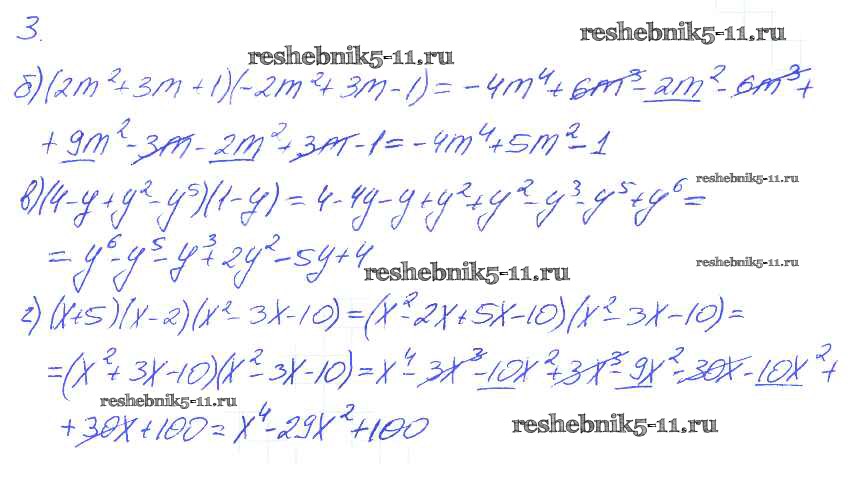 3.
reshebnik5-11.ru
reshebnik5-11.ru
б) (2m² + 3m + 1)(-2m² + 3m - 1) = -4m⁴ + 6m³ - 2m² - 6m³ +
+ 9m² - 3m - 2m² + 3m - 1 = -4m⁴ + 5m² - 1
reshebnik5-11.ru
в) (4 - y + y² - y⁵)(1 - y) = 4 - 4y - y + y² + y² - y³ - y⁵ + y⁶ =
= y⁶ - y⁵ - y³ + 2y² - 5y + 4
reshebnik5-11.ru
reshebnik5-11.ru
г) (x+5)(x-2)(x² - 3x - 10) = (x² - 2x + 5x - 10)(x² - 3x - 10) =
= (x² + 3x - 10)(x² - 3x - 10) = x⁴ - 3x³ - 10x² + 3x³ - 9x² - 30x - 10x² +
reshebnik5-11.ru
+ 30x + 100 = x⁴ - 29x² + 100
reshebnik5-11.ru